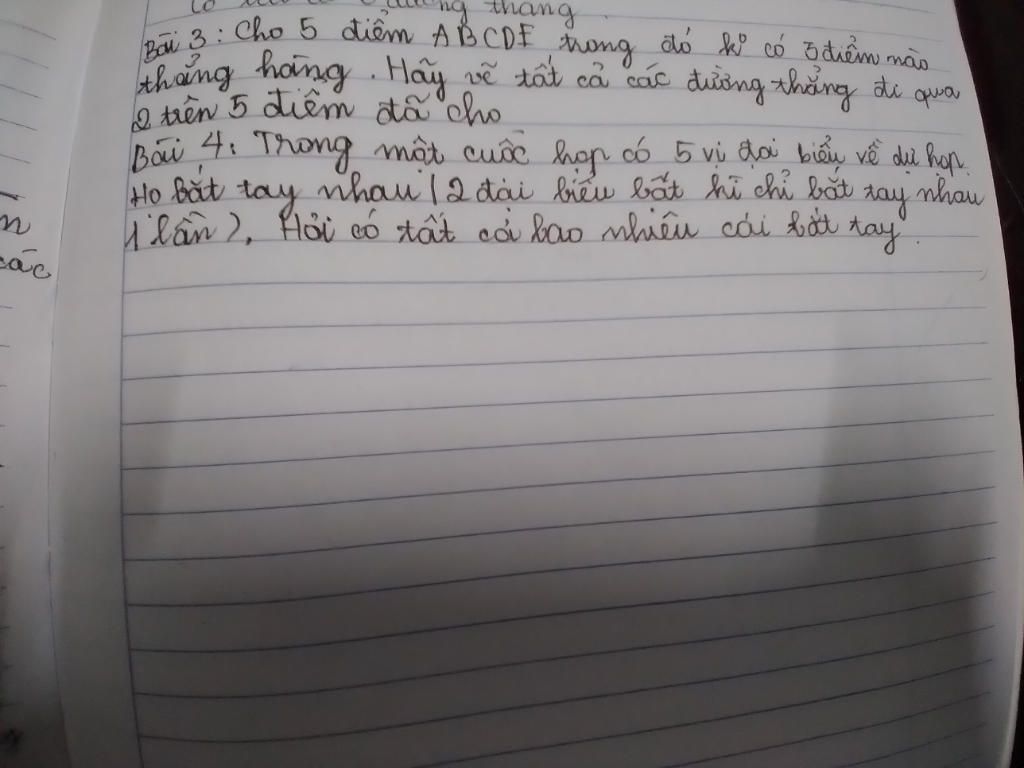 đường thẳng
Bài 3: Cho 5 điểm ABCDE trong đó ko có 3 điểm nào
thẳng hàng. Hãy vẽ tất cả các đường thẳng đi qua
2 trên 5 điểm đã cho
Bài 4: Trong một cuộc họp có 5 vị đại biểu về dự họp.
Họ bắt tay nhau (2 đại biểu bất kì chỉ bắt tay nhau
1 lần), Hỏi có tất cả bao nhiêu cái bắt tay.
các